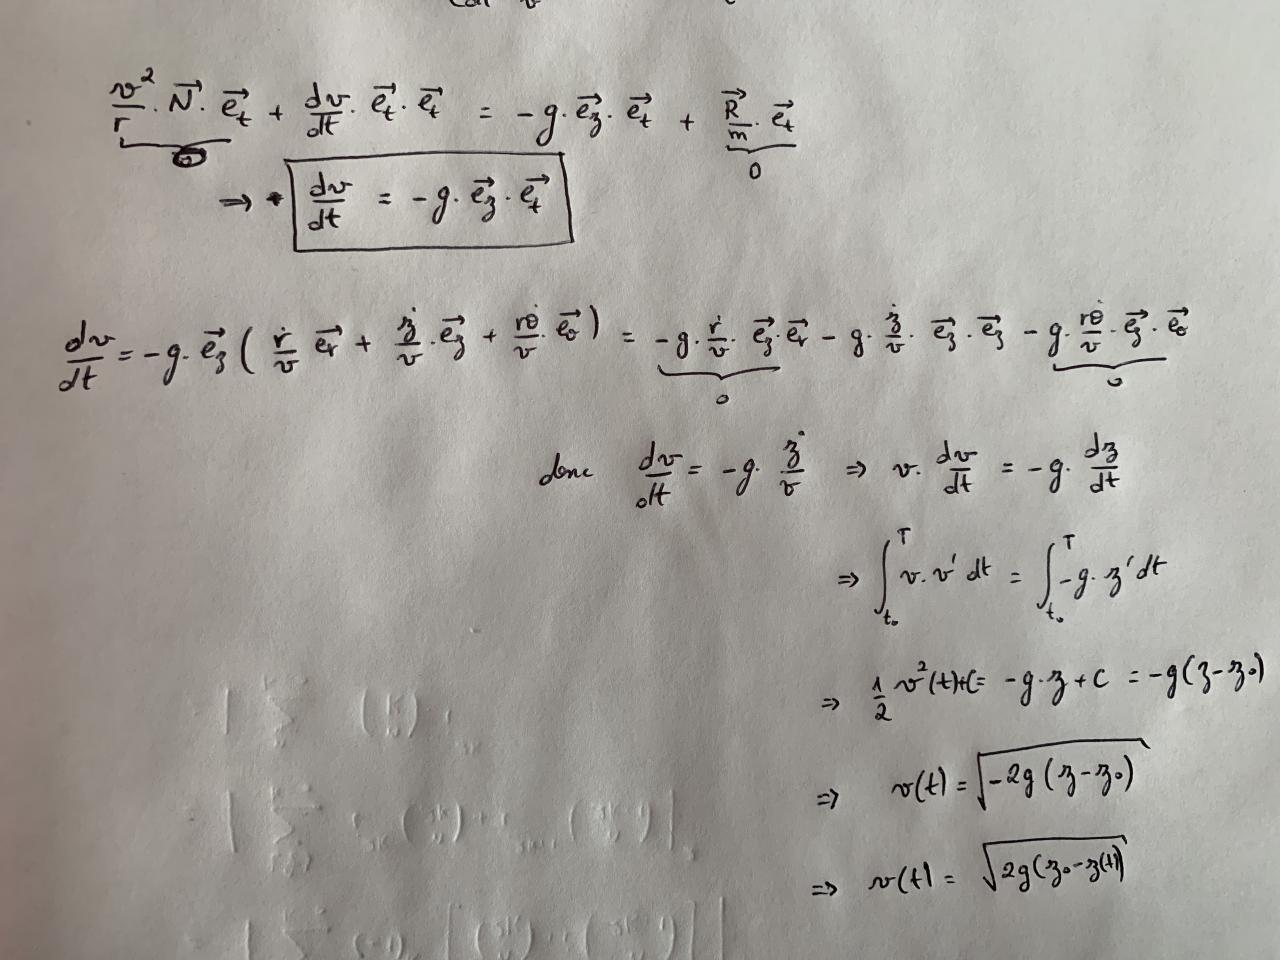 v²/r · N⃗ · e⃗t + dv/dt · e⃗t · e⃗t = -g · e⃗z · e⃗t + R⃗/m · e⃗t
0
⇒ dv/dt = -g · e⃗z · e⃗t
dv/dt = -g · e⃗z ( ṙ/v e⃗r + ż/v · e⃗z + rθ̇/v · e⃗θ ) = -g · ṙ/v · e⃗z · e⃗r - g · ż/v · e⃗z · e⃗z - g · rθ̇/v · e⃗z · e⃗θ
0 0
donc dv/dt = -g · ż/v ⇒ v · dv/dt = -g · dz/dt
⇒ ∫_{t₀}^{T} v · v' dt = ∫_{t₀}^{T} -g · z' dt
⇒ 1/2 v²(t)+C = -g · z + C = -g(z-z₀)
⇒ v(t) = √(-2g(z-z₀))
⇒ v(t) = √(2g(z₀-z(t)))